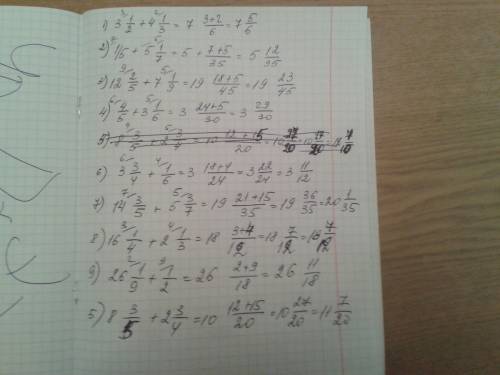 1) 3 ³⁄ 1/2 + 4 ²⁄ 1/3 = 7 (3+2)/6 = 7 5/6
2) ⁷⁄ 1/5 + 5 ⁵⁄ 1/7 = 5 + (7+5)/35 = 5 12/35
3) 12 ⁹⁄ 2/5 + 7 ⁵⁄ 1/9 = 19 (18+5)/45 = 19 23/45
4) ⁶⁄ 4/5 + 3 ⁵⁄ 1/6 = 3 (24+5)/30 = 3 29/30
5) 8 ⁴⁄ 3/5 + 2 ⁵⁄ 3/4 = 10 (12+15)/20 = 10 27/20
6) 3 ⁶⁄ 3/4 + ⁴⁄ 1/6 = 3 (18+4)/24 = 3 22/24 = 3 11/12
7) 14 ⁷⁄ 3/5 + 5 ⁵⁄ 3/7 = 19 (21+15)/35 = 19 36/35 = 20 1/35
8) 16 ³⁄ 1/4 + 2 ⁴⁄ 1/3 = 18 (3+4)/12 = 18 7/12 = 18 7/12
9) 26 ²⁄ 1/9 + ⁹⁄ 1/2 = 26 (2+9)/18 = 26 11/18
5) 8 3/5 + 2 3/4 = 10 (12+15)/20 = 10 27/20 = 11 7/20